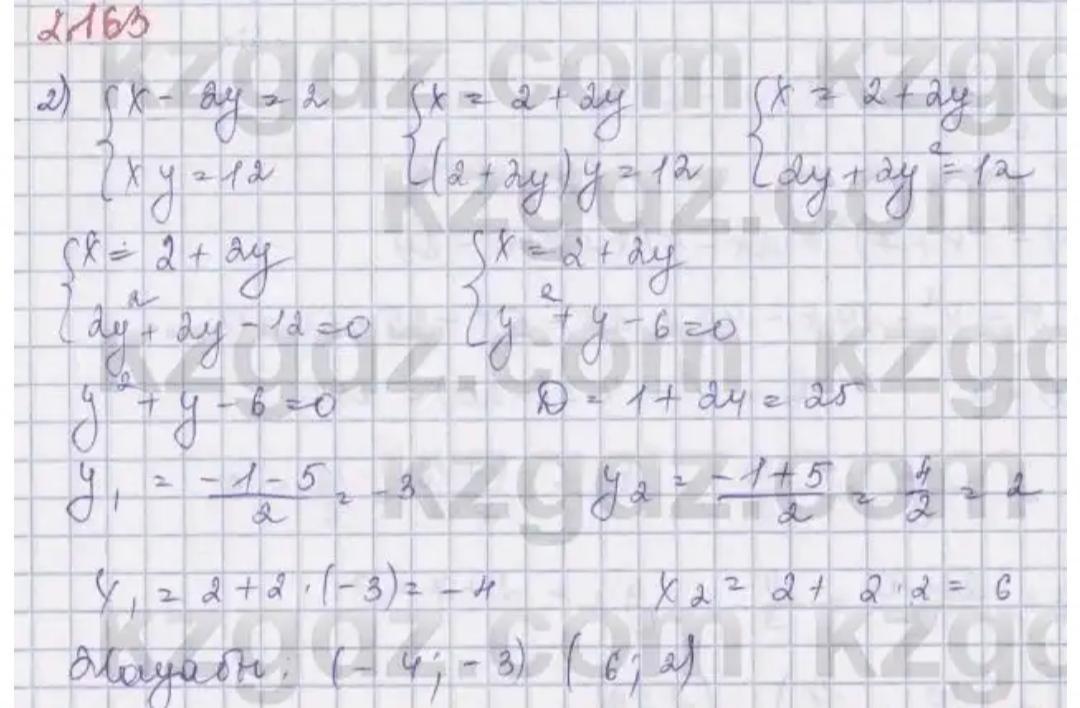 2.163
2) {x - 2y = 2 {x = 2 + 2y {x = 2 + 2y
{xy = 12 {(2 + 2y)y = 12 {2y + 2y² = 12
{x = 2 + 2y {x = 2 + 2y
{2y² + 2y - 12 = 0 {y² + y - 6 = 0
y² + y - 6 = 0 D = 1 + 24 = 25
y₁ = (-1 - 5)/2 = -3 y₂ = (-1 + 5)/2 = 4/2 = 2
x₁ = 2 + 2 · (-3) = -4 x₂ = 2 + 2 · 2 = 6
Жауабы: (-4; -3) (6; 2)
kzgdz.com